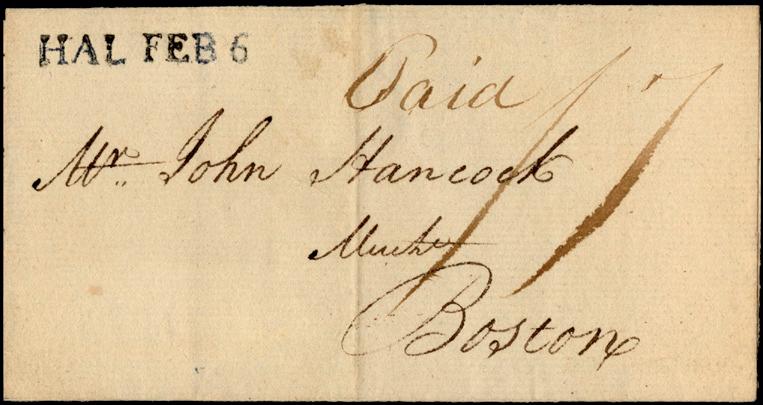 HAL FEB 6
Paid 17
Mr. John Hancock
Boston